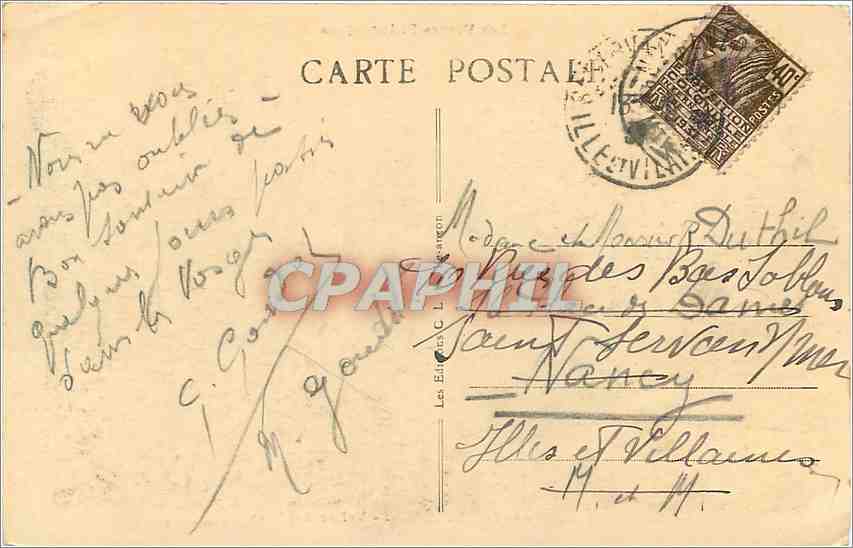 CARTE POSTALE
Nous ne vous
avons pas oubliés
Bon souvenir de
quelques jours passés
dans les Vosges
G.
M
Les Editions C. L.
40c
POSTES
EXPOSITION
COLONIALE
INTERNATIONALE
PARIS 1931
ILLE-ET-VILAINE
Madame et Monsieur Duthil
Rue des Bas Sablons
de Dames
Saint Servan s/mer
Nancy
Illes et Villaines
M. et M.
CPAPHIL